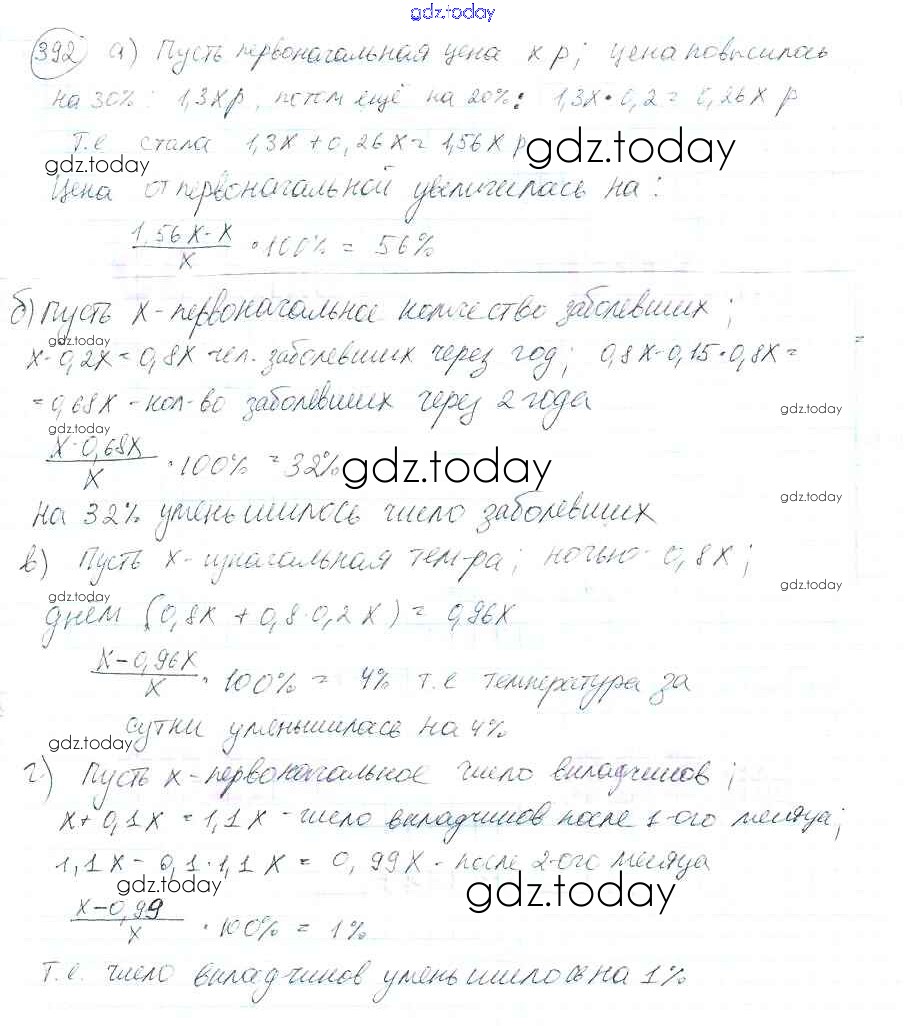 gdz.today
392 а) Пусть первоначальная цена х р; цена повысилась
на 30%: 1,3х р, потом ещё на 20%: 1,3х·0,2=0,26х р
т.е стала 1,3х+0,26х=1,56х р
gdz.today
gdz.today
Цена от первоначальной увеличилась на:
(1,56х-х)/х · 100% = 56%
б) Пусть х-первоначальное количество заболевших;
gdz.today
х-0,2х=0,8х чел. заболевших через год; 0,8х-0,15·0,8х=
=0,68х - кол-во заболевших через 2 года
gdz.today
gdz.today
(х-0,68х)/х · 100% = 32%
gdz.today
gdz.today
на 32% уменьшилось число заболевших
в) Пусть х-изначальная тем-ра; ночью-0,8х;
gdz.today
gdz.today
днём (0,8х+0,8·0,2х)=0,96х
(х-0,96х)/х · 100% = 4% т.е температура за
сутки уменьшилась на 4%
gdz.today
г) Пусть х-первоначальное число вкладчиков;
х+0,1х=1,1х-число вкладчиков после 1-ого месяца;
1,1х-0,1·1,1х=0,99х-после 2-ого месяца
gdz.today
gdz.today
(х-0,99)/х · 100% = 1%
т.е. число вкладчиков уменьшилось на 1%